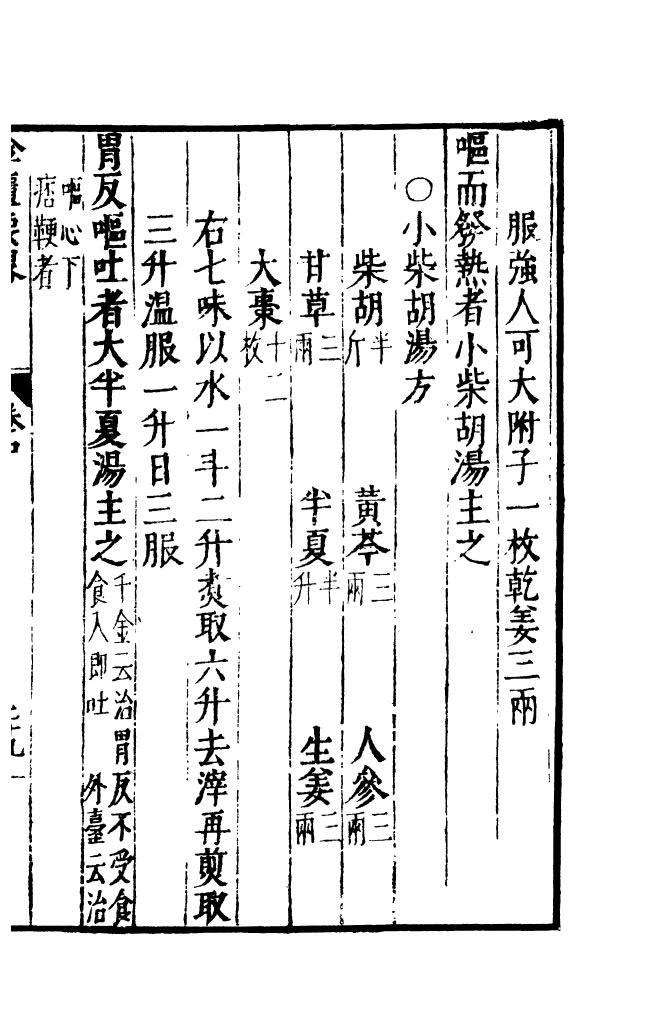 服強人可大附子一枚乾姜三兩
嘔而發熱者小柴胡湯主之
○小柴胡湯方
柴胡半斤 黃芩三兩 人參三兩
甘草三兩 半夏半升 生姜三兩
大棗十二枚
右七味以水一斗二升煑取六升去滓再煎取
三升温服一升日三服
胃反嘔吐者大半夏湯主之千金云治胃反不受食食入即吐外臺云治
嘔心下痞鞕者